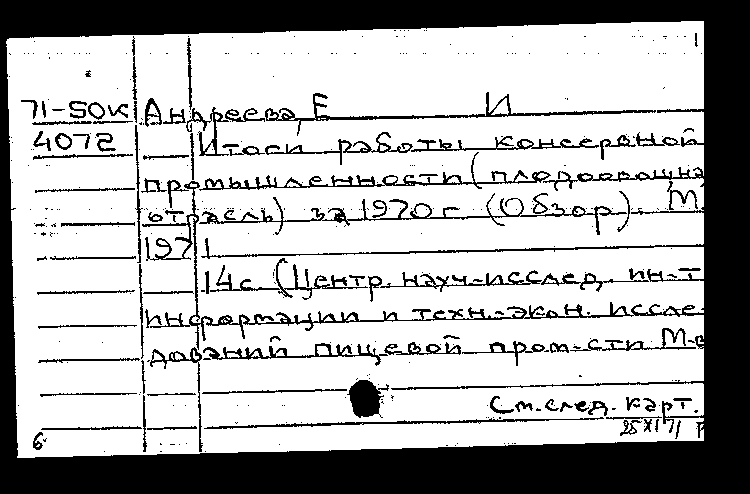 71-50к Андреева, Е И
4072 Итоги работы консервной
промышленности (плодоовощная
отрасль) за 1970 г (Обзор). М.
1971
14с (Центр. науч-исслед. ин-т
информации и техн.-экон. иссле-
дований пищевой пром-сти М-в
См. след. карт.
25 XI 71
6